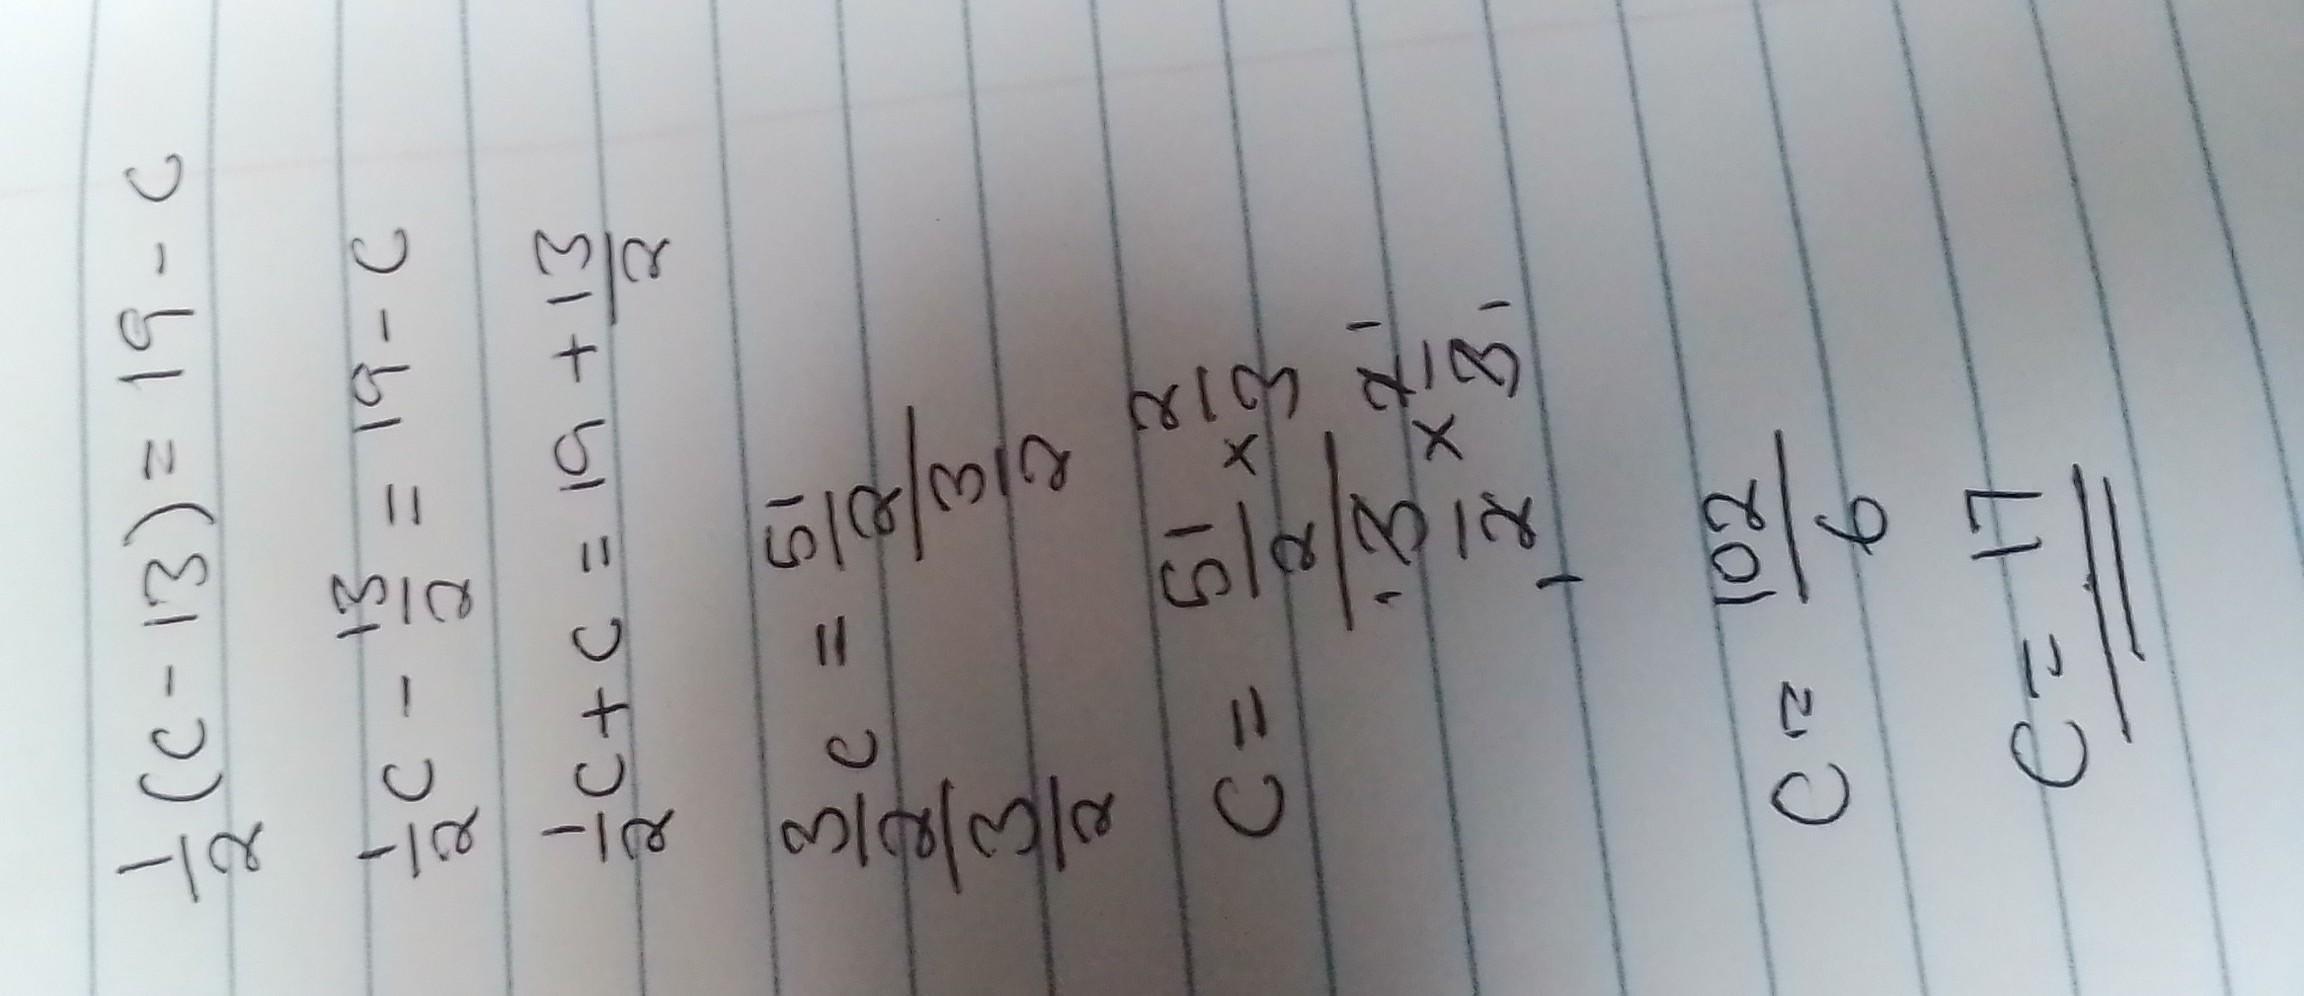 1/2 (c - 13) = 19 - c
1/2 c - 13/2 = 19 - c
1/2 c + c = 19 + 13/2
3/2 c = 51/2
3/2 3/2
c = 51/2 × 2/3
3/2 × 2/3
1 1
1 1
c = 102/6
c = 17